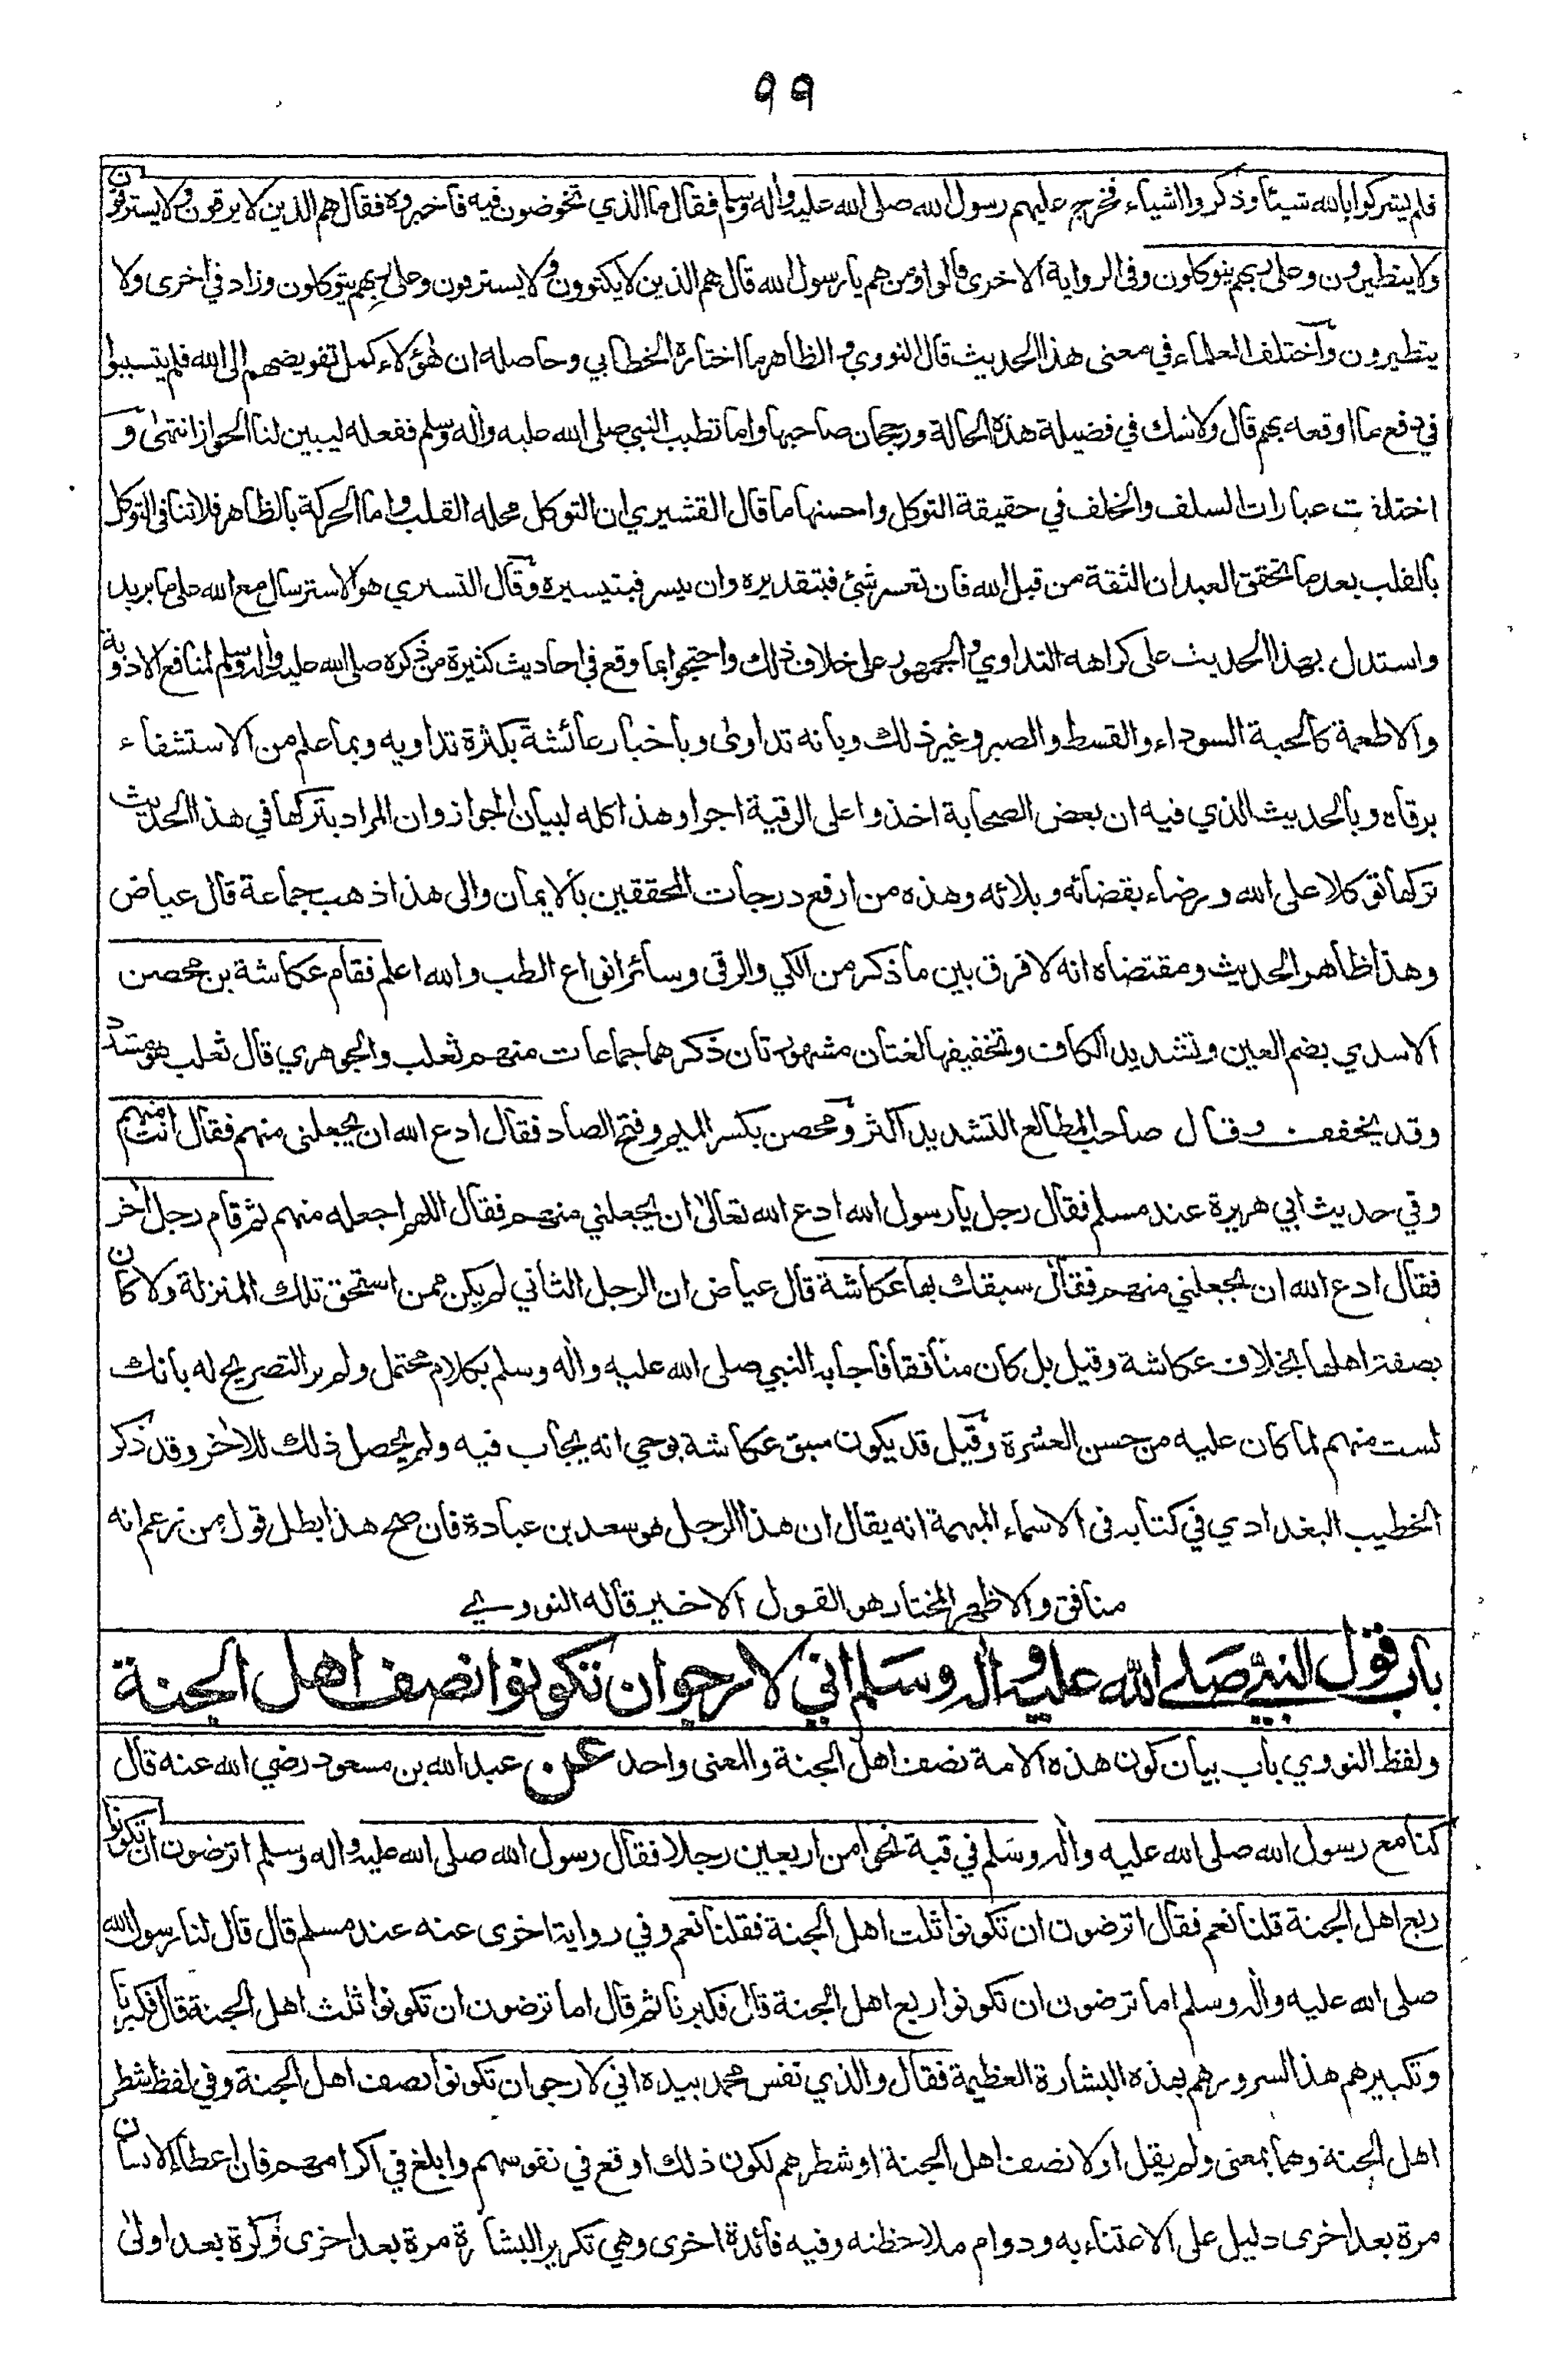 ٩٩
فلم يشركوا بالله شيئا وذكروا اشياء فخرج عليهم رسول الله صلى الله عليه وأله وسلم فقال ما الذي تخوضون فيه فاخبروه فقال هم الذين لا يرقون ولا يسترقون
ولا يتطيرون وعلى ربهم يتوكلون وفي الرواية الاخرى قالوا ومن هم يا رسول الله قال هم الذين لا يكتوون ولا يسترقون وعلى ربهم يتوكلون وزاد في اخرى ولا
يتطيرون وأختلف العلماء في معنى هذا الحديث قال النووي والظاهر ما اختاره الخطابي وحاصله ان هؤلاء كمل تفويضهم الى الله فلم يتسببوا
في دفع ما اوقعه بهم قال ولا شك في فضيلة هذه الحالة ورجحان صاحبها واما تطبب النبي صلى الله عليه وأله وسلم ففعله ليبين لنا الجواز انتهى و
اختلفت عبارات السلف والخلف في حقيقة التوكل واحسنها ما قال القشيري ان التوكل محله القلب واما الحركة بالظاهر فلا تنافي التوكل
بالقلب بعد ما تحقق العبد ان الثقة من قبل الله فان تعسر شئ فبتقديره وان يسر فبتيسيره وقال التستري هو الاسترسال مع الله على ما يريد
واستدل بهذا الحديث على كراهه التداوي والجمهور على خلاف ذلك واحتجوا بما وقع في احاديث كثيرة من ذكره صلى الله عليه وأله وسلم لمنافع الادوية
والاطعمة كالحبة السوداء والقسط والصبر وغير ذلك وبانه تداوى وباخبار عائشة بكثرة تداويه وبما علم من الاستشفاء
برقاه وبالحديث الذي فيه ان بعض الصحابة اخذوا على الرقية اجرا وهذا كله لبيان الجواز وان المراد بتركها في هذا الحديث
تركها توكلا على الله ورضاء بقضائه وبلائه وهذه من ارفع درجات المحققين بالايمان والى هذا ذهب جماعة قال عياض
وهذا ظاهر الحديث ومقتضاه انه لا فرق بين ما ذكر من الكي والرقى وسائر انواع الطب والله اعلم فقام عكاشة بن محصن
الاسدي بضم العين وتشديد الكاف وتخفيفها لغتان مشهورتان ذكرهما جماعات منهم ثعلب والجوهري قال ثعلب هو مشدد
وقد يخفف وقال صاحب المطالع التشديد اكثر ومحصن بكسر الميم وفتح الصاد فقال ادع الله ان يجعلني منهم فقال انت منهم
وفي حديث ابي هريرة عند مسلم فقال رجل يا رسول الله ادع الله تعالى ان يجعلني منهم فقال اللهم اجعله منهم ثم قام رجل أخر
فقال ادع الله ان يجعلني منهم فقال سبقك بها عكاشة قال عياض ان الرجل الثاني لم يكن ممن استحق تلك المنزلة ولا كان
بصفة اهلها بخلاف عكاشة وقيل بل كان منافقا فاجابه النبي صلى الله عليه وأله وسلم بكلام محتمل ولم ير التصريح له بانك
لست منهم لما كان عليه من حسن العشرة وقيل قد يكون سبق عكاشة بوحي انه يجاب فيه ولم يحصل ذلك للأخر وقد ذكر
الخطيب البغدادي في كتابه في الاسماء المبهمة انه يقال ان هذا الرجل هو سعد بن عبادة فان صح هذا بطل قول من زعم انه
منافق والاظهر المختار هو القول الاخير قاله النووي
باب قول النبي صلى الله عليه وأله وسلم اني لارجو ان تكونوا نصف اهل الجنة
ولفظ النووي باب بيان كون هذه الامة نصف اهل الجنة والمعنى واحد عن عبد الله بن مسعود رضي الله عنه قال
كنا مع رسول الله صلى الله عليه وأله وسلم في قبة نحوا من اربعين رجلا فقال رسول الله صلى الله عليه وأله وسلم اترضون ان تكونوا
ربع اهل الجنة قلنا نعم فقال اترضون ان تكونوا ثلث اهل الجنة فقلنا نعم وفي رواية اخرى عنه عند مسلم قال قال لنا رسول الله
صلى الله عليه وأله وسلم اما ترضون ان تكونوا ربع اهل الجنة قال فكبرنا ثم قال اما ترضون ان تكونوا ثلث اهل الجنة قال فكبرنا
وتكبيرهم هذا لسرورهم بهذه البشارة العظيمة فقال والذي نفس محمد بيده اني لارجو ان تكونوا نصف اهل الجنة وفي لفظ شطر
اهل الجنة وهما بمعنى ولم يقل اولا نصف اهل الجنة او شطرهم لكون ذلك اوقع في نفوسهم وابلغ في اكرامهم فان اعطاء الانسان
مرة بعد اخرى دليل على الاعتناء به ودوام ملاحظته وفيه فائدة اخرى وهي تكرير البشارة مرة بعد اخرى وكرة بعد اولى